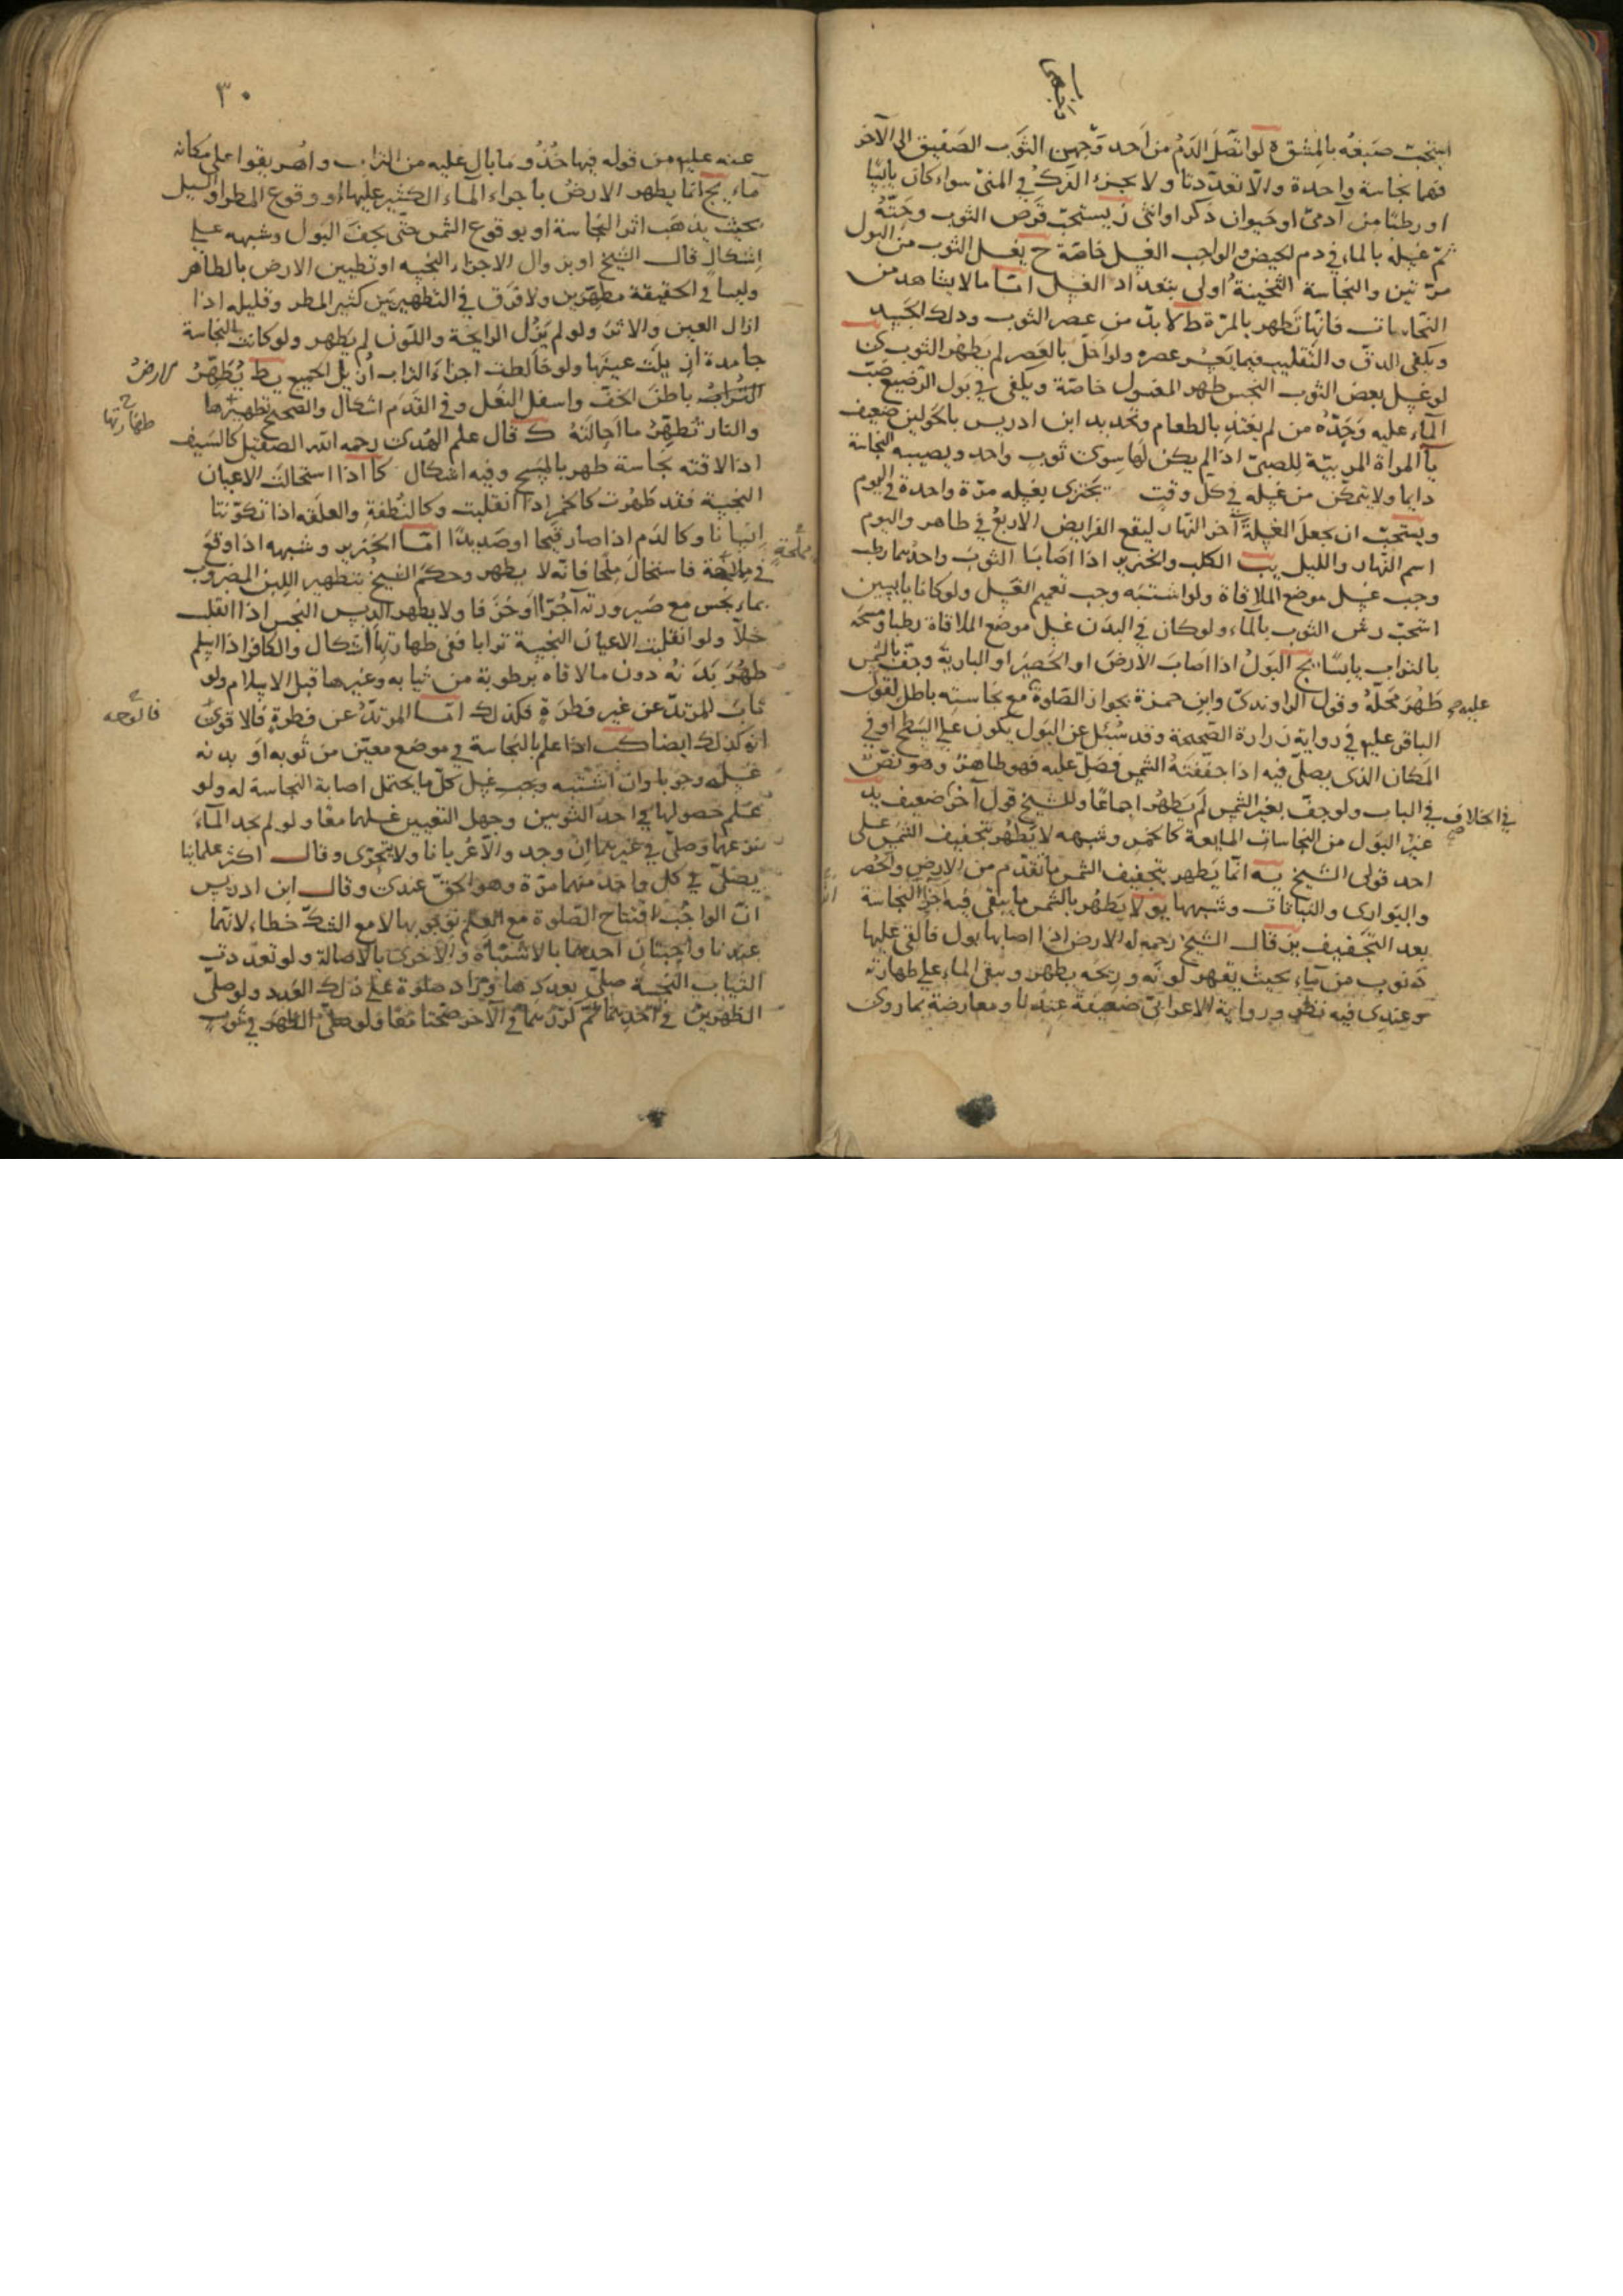 استحبّ صبغه بالمشق ه لو اتّصل الدم من احد وجهى الثوب الصفيق الى الآخر
فهما نجاسة واحدة والّا تعدّدتا ولا يجزئ الفرك في المنى سواء كان يابسًا
او رطبًا من آدمىّ او حيوان ذكر او انثى ز يستحبّ قرص الثوب وحتّه
ثمّ غسله بالماء في دم الحيض والواجب الغسل خاصّة ح يغسل الثوب من البول
مرّتين والنجاسة الثخينة اولى بتعداد الغسل امّا ما لا يشاهد من
النجاسات فانّها تطهر بالمرّة ط لا بدّ من عصر الثوب وذلك الجسد
ويكفى الدقّ والتقليب فيما يعسر عصره ولو اخلّ بالعصر لم يطهر الثوب
لو غسل بعض الثوب النجس طهر المغسول خاصّة ويكفى في بول الرضيع صبّ
الماء عليه وحدّه من لم يغتذ بالطعام وتحديد ابن ادريس بالحولين ضعيف
يا المراة المربيّة للصبىّ اذا لم يكن لها سوى ثوب واحد ويصيبه النجاسة
دايما ولا يتمكّن من غسله في كلّ وقت تجتزى بغسله مرّة واحدة في اليوم
ويستحبّ ان يجعل الغسلة آخر النهار ليقع الفرايض الاربع في طاهر واليوم
اسم النهار والليل يب الكلب والخنزير اذا اصابا الثوب واحدهما رطب
وجب غسل موضع الملاقاة ولو اشتبه وجب تعميم الغسل ولو كانا يابسين
استحبّ رش الثوب بالماء ولو كان في البدن غسل موضع الملاقاة رطبا ومسحه
بالتراب يابسًا يج البول اذا اصاب الارض او الحصير او البارية وجفّ بالشمس
طهر محلّه وقول الراوندى وابن حمزة بجواز الصلوة عليه مع نجاسته باطل لقول
الباقر عليه في رواية زرارة الصحيحة وقد سئل عن البول يكون على السطح او في
المكان الذى يصلّى فيه اذا جففته الشمس فصلّ عليه فهو طاهر وهو نصّ
في الباب ولو جفّ بغير الشمس لم يطهر اجماعًا وللشيخ قول آخر في الخلاف ضعيف يد
غير البول من النجاسات المايعة كالخمر وشبهه لا يطهر بتجفيف الشمس على
احد قولى الشيخ يه انّما يطهر بتجفيف الشمس ما تقدّم من الارض والحصر
والبوارى والنباتات وشبهها يو لا يطهر بالشمس ما يبقى فيه اجزاء النجاسة
بعد التجفيف يز قال الشيخ رحمه الله الارض اذا اصابها بول فالقى عليها
ذنوب من ماء بحيث يقهر لونه وريحه يطهر ويبقى الماء على طهارته
وعندى فيه نظر ورواية الاعرابىّ ضعيفة عندنا ومعارضة بما روى
٣٠
عنه عليه من قوله فيها خذوا ما بال عليه من التراب واهريقوا على مكانه
ماء يج انّما يطهر الارض باجراء الماء الكثير عليها او وقوع المطر او السيل
بحيث يذهب اثر النجاسة او بوقوع الشمس حتّى يجفّ البول وشبهه على
اشكال قال الشيخ او بزوال الاجزاء النجسه او تطيين الارض بالطاهر
وليسا في الحقيقة مطهّرين ولا فرق في التطهير بين كثير المطر وقليله اذا
ازال العين والاثر ولو لم يزل الرايحة واللون لم يطهر ولو كانت النجاسة
جامدة ازيلت عينها ولو خالطت اجزاء التراب ازيل الجميع يط يطهّر الارض
باطن الخفّ واسفل النعل وفي القدم اشكال والصحيح طهارتها
والنار تطهّر ما احالته ك قال علم الهدى رحمه الله الصقيل كالسيف
اذا لاقته نجاسة طهر بالمسح وفيه اشكال كا اذا استحالت الاعيان
النجسة فقد طهرت كالخمر اذا انقلبت وكالنطفة والعلقه اذا تكوّنتا
انسانا وكالدم اذا صار قيحا او صديدًا امّا الخنزير وشبهه اذا وقع
في مملحة فاستحال ملحًا فانّه لا يطهر وحكم الشيخ بتطهير اللبن المضروب
بماء نجس مع صيرورته آجرّا او خزفا ولا يطهر الدبس النجس اذا انقلب
خلّا ولو انقلبت الاعيان النجسة ترابا ففى طهارتها اشكال والكافر اذا اسلم
طهر بدنه دون ما لاقاه برطوبة من ثيابه وغيرها قبل الاسلام ولو
تاب المرتدّ عن غير فطرة فكذلك امّا المرتدّ عن فطرة فالاقوى فالوجه
انّه كذلك ايضا كب اذا علم بالنجاسة في موضع معيّن من ثوبه او بدنه
غسله وجوبا وان اشتبه وجب غسل كلّ ما يحتمل اصابة النجاسة له ولو
علم حصولها في احد الثوبين وجهل التعيين غسلهما معًا ولو لم يجد الماء
نزعهما وصلّى في غيرهما ان وجد والّا عريانا ولا يتحرّى وقال اكثر علمائنا
يصلّى في كلّ واحد منهما مرّة وهو الحقّ عندى وقال ابن ادريس
انّ الواجب افتتاح الصلوة مع العلم بوجوبها لا مع الشكّ خطاء لانّهما
عندنا واجبتان احدهما بالاشتباه والاخرى بالاصالة ولو تعدّدت
الثياب النجسة صلّى بعددها وزاد صلوة على ذلك العدد ولو صلّى
الظهرين في احدهما ثمّ كرّرهما في الآخر صحّتا معًا ولو صلّى الظهر في ثوب